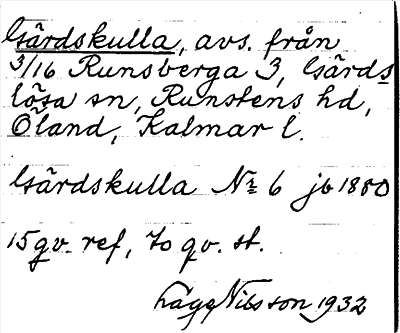 Gärdskulla, avs. från
3/16 Runsberga 3, Gärds
lösa sn, Runstens hd,
Öland, Kalmar l.
Gärdskulla № 6 jb 1880
15 gv. ref, to gv. st.
Låge Nilsson 1932